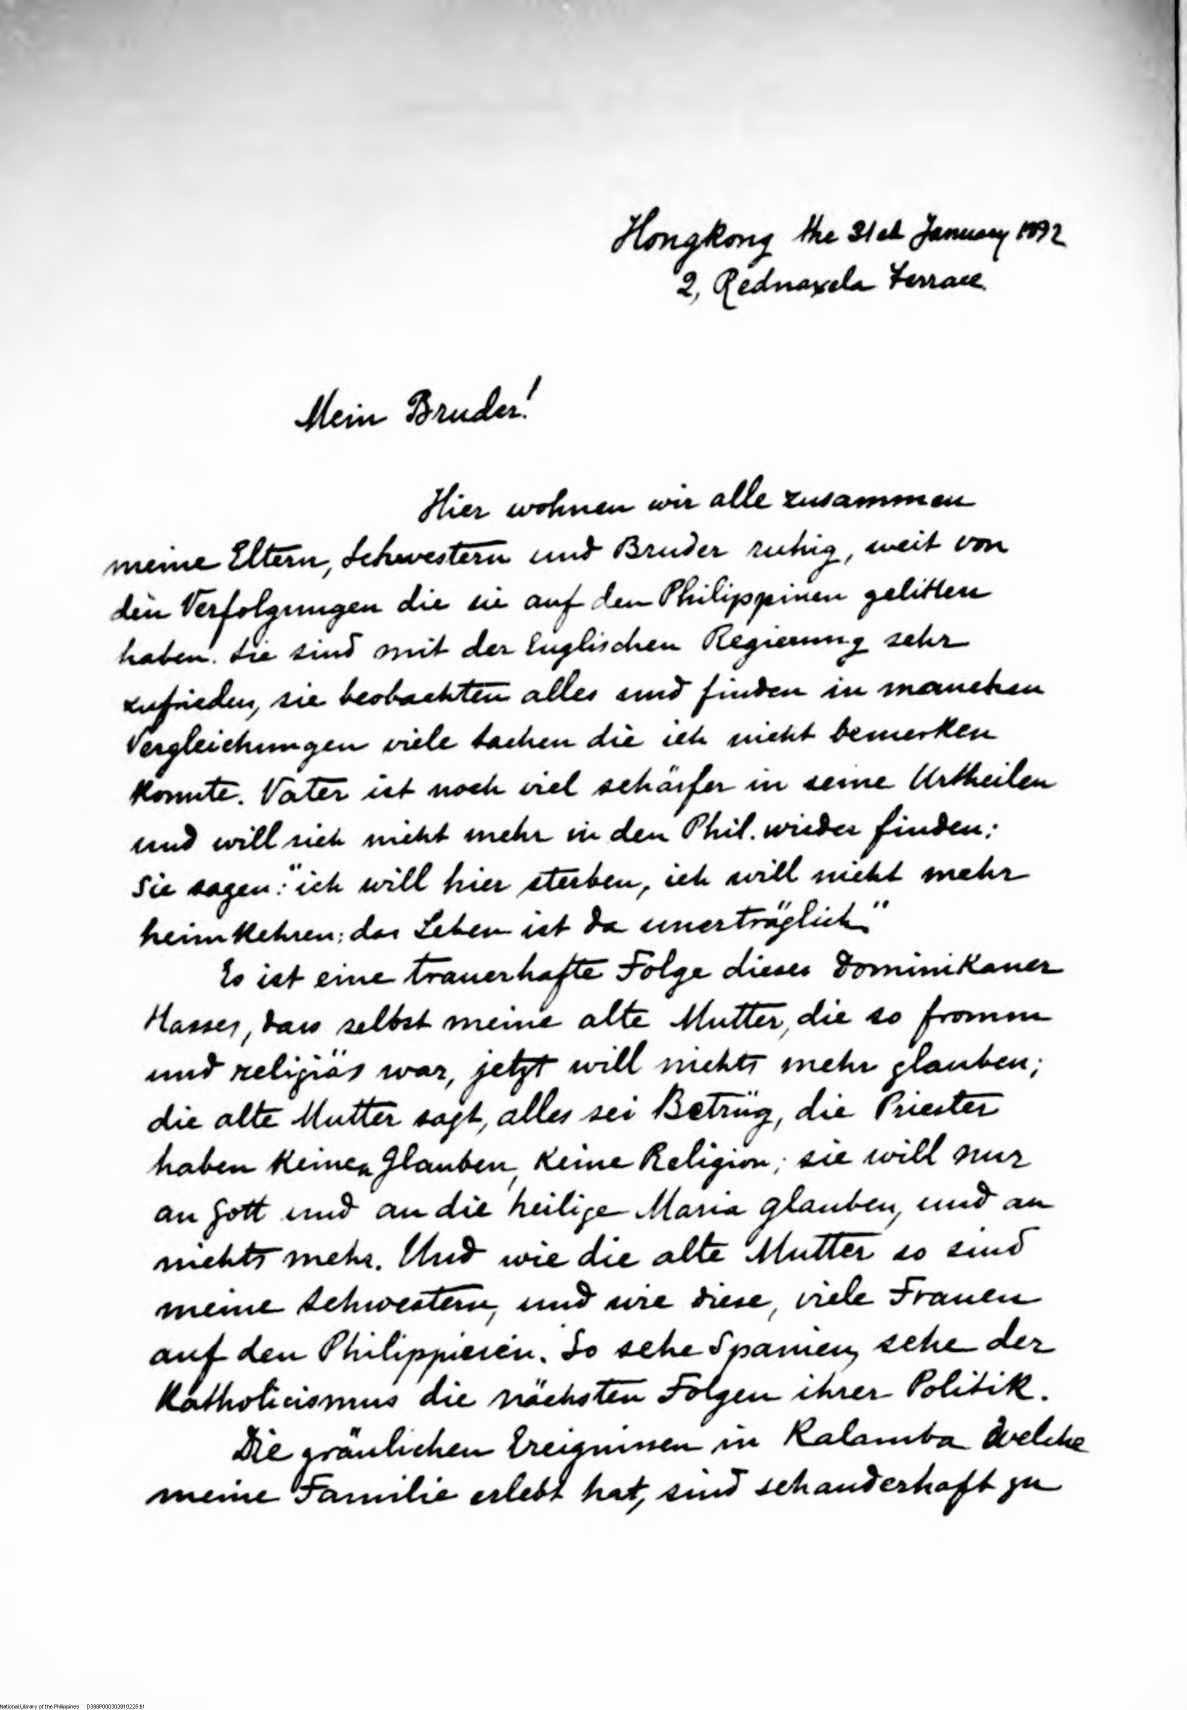 Hongkong the 31st January 1892
2, Rednaxela Terrace.
Mein Bruder!
Hier wohnen wir alle zusammen
meine Eltern, Schwestern und Bruder ruhig, weit von
den Verfolgungen die sie auf den Philippinen gelitten
haben. Sie sind mit der Englischen Regierung sehr
zufrieden, sie beobachten alles und finden in manchen
Vergleichungen viele Sachen die ich nicht bemerken
konnte. Vater ist noch viel schärfer in seine Urtheilen
und will sich nicht mehr in den Phil. wieder finden:
Sie sagen: "ich will hier sterben, ich will nicht mehr
heimkehren: das Leben ist da unerträglich"
Es ist eine trauerhafte Folge dieses Dominikaner
Hasses, dass selbst meine alte Mutter, die so fromm
und religiös war, jetzt will nichts mehr glauben;
die alte Mutter sagt, alles sei Betrüg, die Priester
haben keinen Glauben, keine Religion; sie will nur
an Gott und an die heilige Maria glauben, und an
nichts mehr. Und wie die alte Mutter so sind
meine Schwestern, und wie diese, viele Frauen
auf den Philippinen. So sehe Spanien, sehe der
Katholicismus die nächsten Folgen ihrer Politik.
Die gräulichen Ereignissen in Kalamba welche
meine Familie erlebt hat, sind schauderhaft zu
National Library of the Philippines